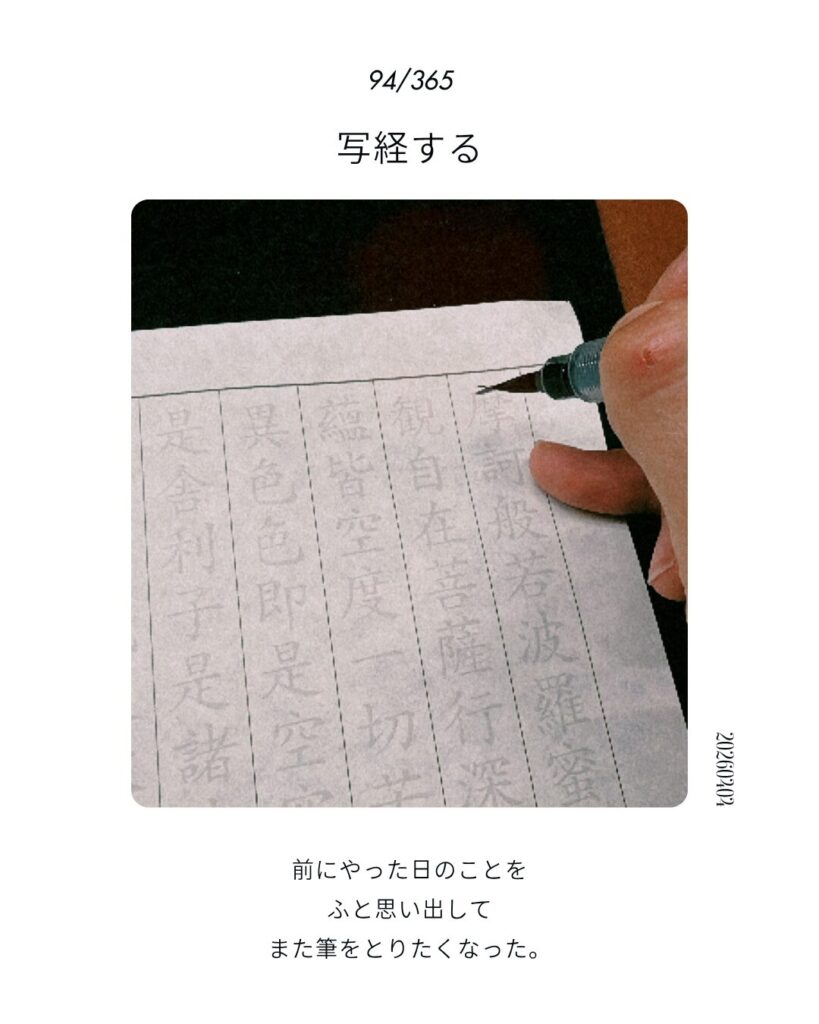 94/365
写経する
摩訶般若波羅蜜
観自在菩薩行深
蘊皆空度一切苦
異色色即是空空
是舎利子是諸
20260404
前にやった日のことを
ふと思い出して
また筆をとりたくなった。